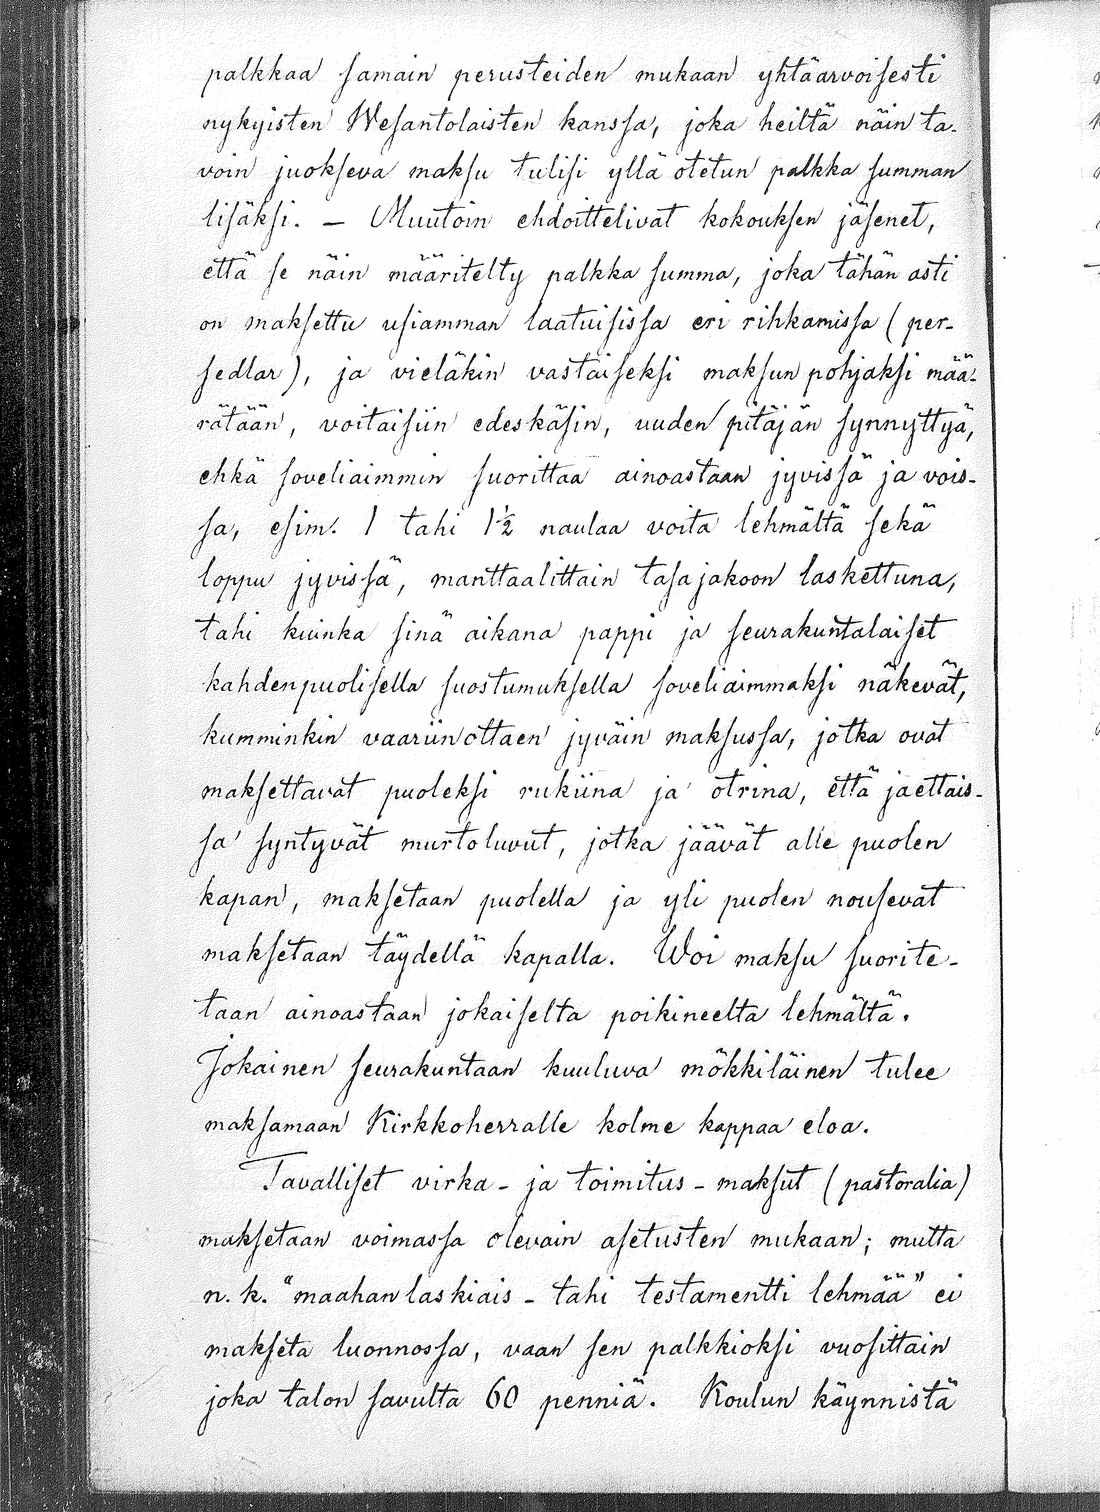 palkkaa samain perusteiden mukaan yhtäarvoisesti
nykyisten Wesantolaisten kanssa, joka heiltä näin ta-
voin juokseva maksu tulisi yllä otetun palkka summan
lisäksi. — Muutoin ehdoittelivat kokouksen jäsenet,
että se näin määritelty palkka summa, joka tähän asti
on maksettu usiamman laatuisissa eri rihkamissa (per-
sedlar), ja vieläkin vastaiseksi maksun pohjaksi mää-
rätään, voitaisiin edeskäsin, uuden pitäjän synnyttyä,
ehkä soveliaimmin suorittaa ainoastaan jyvissä ja vois-
sa, esim. 1 tahi 1½ naulaa voita lehmältä sekä
loppu jyvissä, manttaalittain tasajakoon laskettuna,
tahi kuinka sinä aikana pappi ja seurakuntalaiset
kahdenpuolisella suostumuksella soveliaimmaksi näkevät,
kumminkin vaariinottaen jyväin maksussa, jotka ovat
maksettavat puoleksi rukiina ja otrina, että jaettais-
sa syntyvät murtoluvut, jotka jäävät alle puolen
kapan, maksetaan puolella ja yli puolen nousevat
maksetaan täydellä kapalla. Woi maksu suorite-
taan ainoastaan jokaiselta poikineelta lehmältä.
Jokainen seurakuntaan kuuluva mökkiläinen tulee
maksamaan Kirkkoherralle kolme kappaa eloa.
Tavalliset virka- ja toimitus-maksut (pastoralia)
maksetaan voimassa olevain asetusten mukaan; mutta
n. k. "maahanlaskiais- tahi testamentti lehmää" ei
makseta luonnossa, vaan sen palkkioksi vuosittain
joka talon savulta 60 penniä. Koulun käynnistä